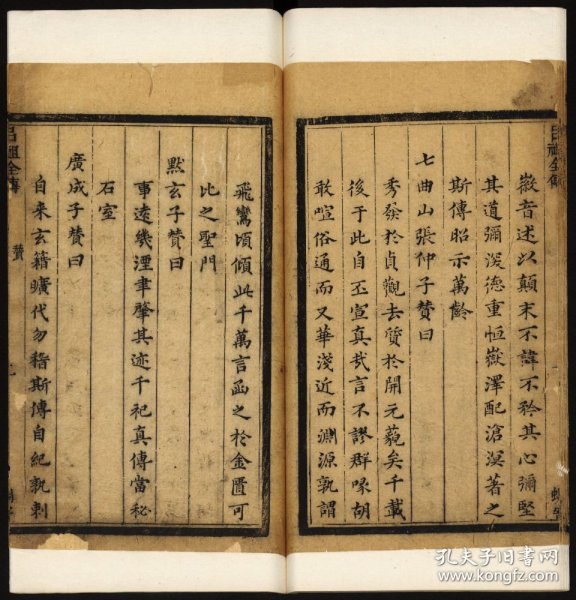 徽音述以顛末不諱不矜其心彌堅
其道彌浚德重恒嶽澤配滄溟著之
斯傳昭示萬齡
七曲山張仲子贊曰
秀發於貞觀去質於開元藐矣千載
後于此自丕宣真哉言不謬群喙胡
敢喧俗通而又華淺近而淵源孰謂
飛鸞頃傾此千萬言函之於金匱可
比之聖門
默玄子贊曰
事逺幾湮聿肇其迹千祀真傳當秘
石室
廣成子贊曰
自来玄籍曠代勿稽斯傳自紀孰剌
呂祖全傳
贊
呂祖全傳
孔夫子旧书网
www.kongfz.com